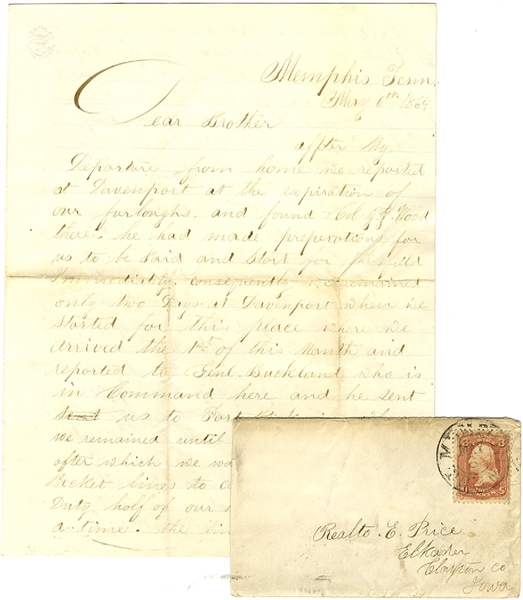 Memphis Tenn
May 6th 1864
Dear Brother
affter My
Departure from home we reported
at Davenport at the expiration of
our furloughs. and found Col J. Wood
there. he had made preperations for
us to be Paid and Start for
Immediatly. Consequently we remained
only two Days at Davenport when we
Started for this place where we
arrived the 1st of this Month and
reported to Genl Buckland who is
in Command here and he sent
us to Fort
we remained until
after which we
Picket lines to
Duty. half of our
a time. the
MEMPHIS
3 3
Realto E. Price
Elkader
Clayton Co
Iowa